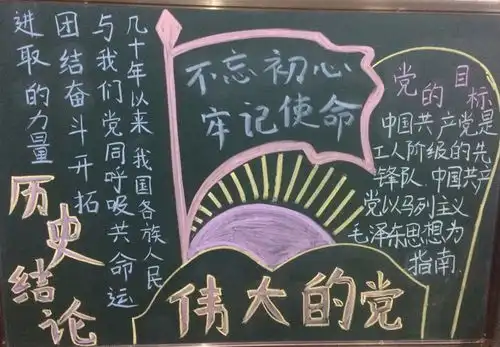 不忘初心
牢记使命
几十年以来 我国各族人民
与我们党同呼吸共命运
团结奋斗开拓
进取的力量
历史结论
党的目标
中国共产党是
工人阶级的先
锋队.中国共产
党以马列主义
毛泽东思想为
指南.
伟大的党